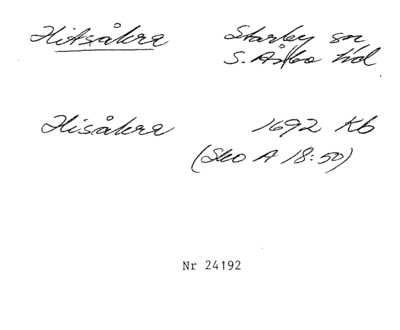 Hitsåkra Starby sn
S. Åsbo hd
Hisåkra 1692 Kb
(Sko A 18:50)
Nr 24192